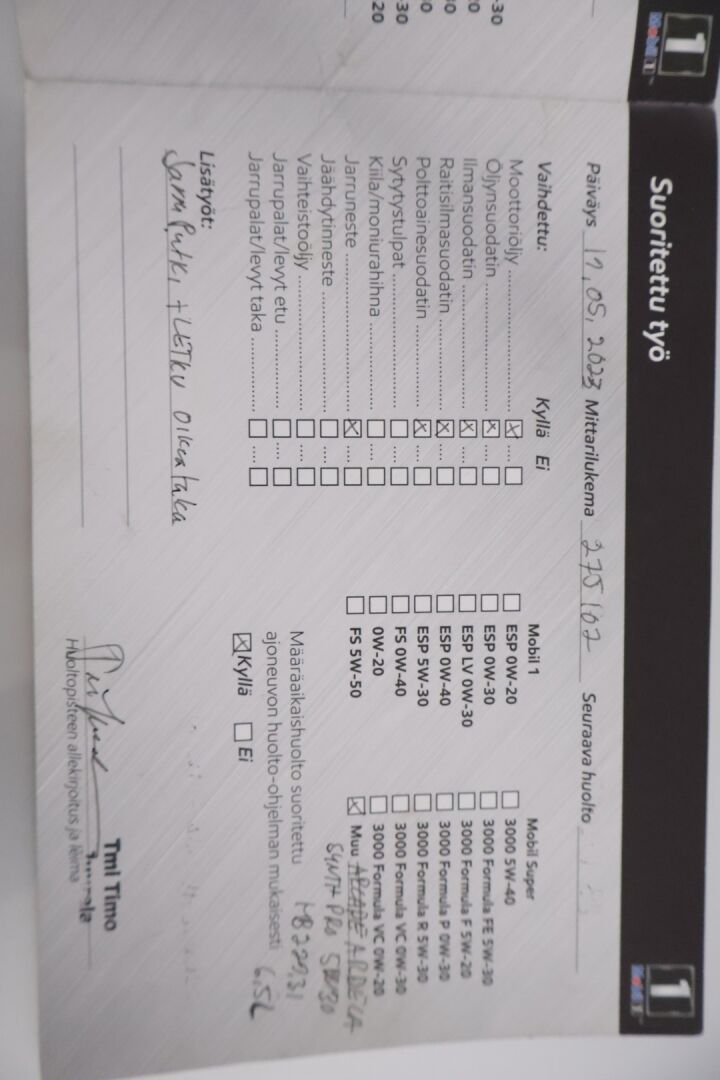 -30
-30
20
1
Mobil 1
1
Mobil 1
Suoritettu työ
Päiväys 19.05.2023 Mittarilukema 275107 Seuraava huolto
Vaihdettu: Kyllä Ei
Moottoriöljy
Öljynsuodatin
Ilmansuodatin
Raitisilmasuodatin
Polttoainesuodatin
Sytytystulpat
Kiila/moniurahihna
Jarruneste
Jäähdytinneste
Vaihteistoöljy
Jarrupalat/levyt etu
Jarrupalat/levyt taka
Lisätyöt:
Jarruputki + LETKU Oikea taka
Mobil 1
ESP 0W-20
ESP 0W-30
ESP LV 0W-30
ESP 0W-40
ESP 5W-30
FS 0W-40
0W-20
FS 5W-50
Mobil Super
3000 5W-40
3000 Formula FE 5W-30
3000 Formula F 5W-20
3000 Formula P 0W-30
3000 Formula R 5W-30
3000 Formula VC 0W-30
3000 Formula VC 0W-20
Muu
SYNTH PRO 5W30
MB 229.31
6.5L
Määräaikaishuolto suoritettu
ajoneuvon huolto-ohjelman mukaisesti
Kyllä Ei
Tml Timo
Huoltopisteen allekirjoitus ja leima